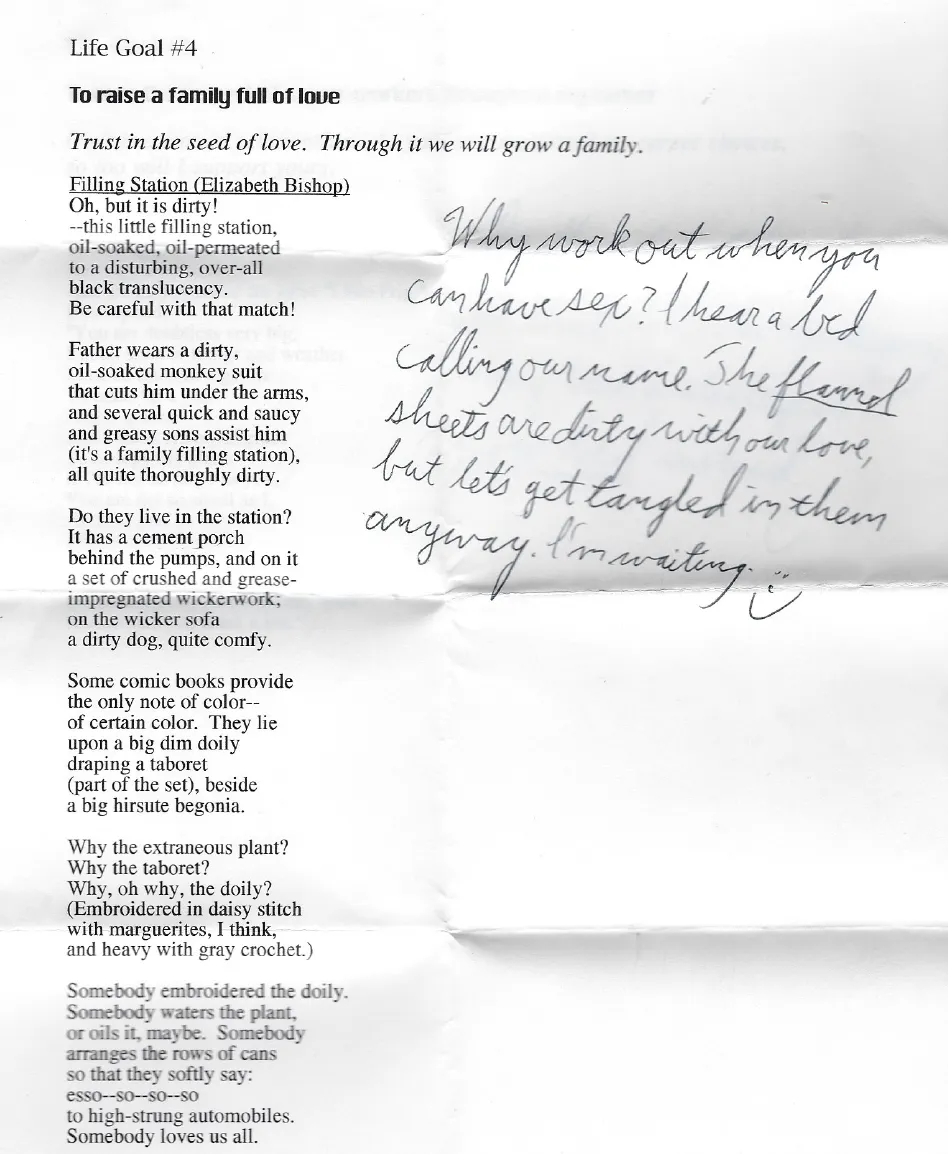 Life Goal #4
To raise a family full of love
Trust in the seed of love.  Through it we will grow a family.
Filling Station (Elizabeth Bishop)
Oh, but it is dirty!
--this little filling station,
oil-soaked, oil-permeated
to a disturbing, over-all
black translucency.
Be careful with that match!
Father wears a dirty,
oil-soaked monkey suit
that cuts him under the arms,
and several quick and saucy
and greasy sons assist him
(it's a family filling station),
all quite thoroughly dirty.
Do they live in the station?
It has a cement porch
behind the pumps, and on it
a set of crushed and grease-
impregnated wickerwork;
on the wicker sofa
a dirty dog, quite comfy.
Some comic books provide
the only note of color--
of certain color.  They lie
upon a big dim doily
draping a taboret
(part of the set), beside
a big hirsute begonia.
Why the extraneous plant?
Why the taboret?
Why, oh why, the doily?
(Embroidered in daisy stitch
with marguerites, I think,
and heavy with gray crochet.)
Somebody embroidered the doily.
Somebody waters the plant,
or oils it, maybe.  Somebody
arranges the rows of cans
so that they softly say:
esso--so--so--so
to high-strung automobiles.
Somebody loves us all.
Why work out when you
can have sex? I hear a bed
calling our name. The flannel
sheets are dirty with our love,
but let's get tangled in them
anyway. I'm waiting.